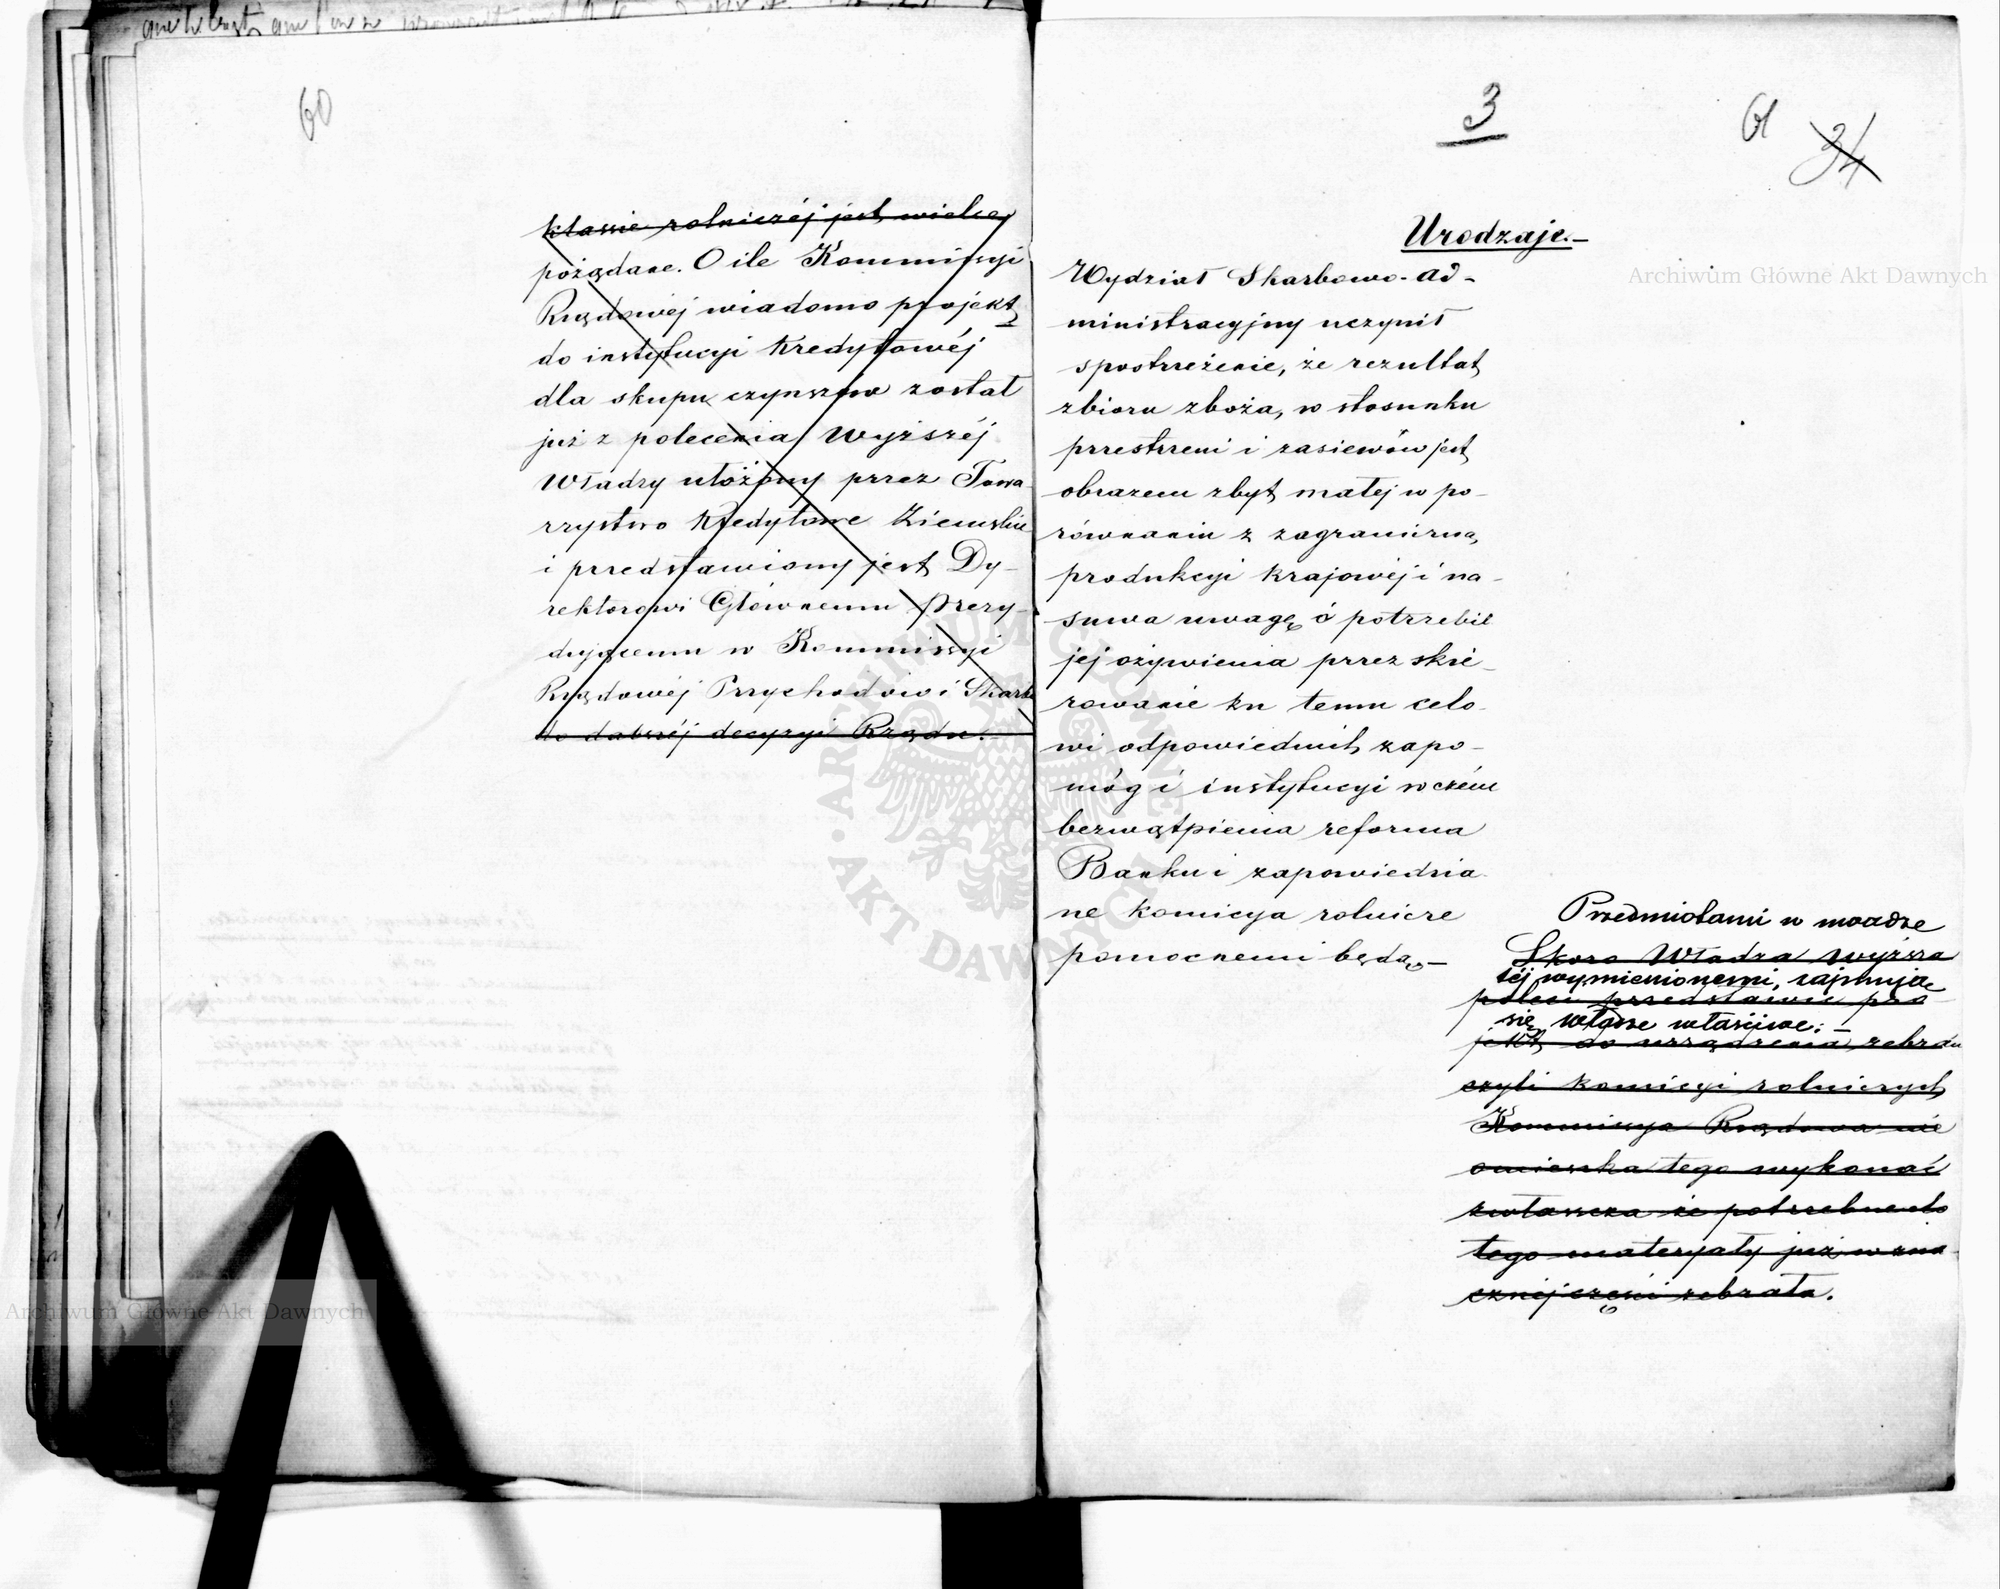 60
klassie rolniczéj jest wielce
pożądane. O ile Kommissyi
Rządowéj wiadomo projekt
do instytucyi Kredytowéj
dla skupu czynszów został
już z polecenia Wyższéj
Władzy ułożony przez Towa-
rzystwo Kredytowe Ziemskie
i przedstawiony jest Dy-
rektorowi Głównemu Prezy-
dującemu w Kommissyi
Rządowéj Przychodów i Skarbu
do dalszéj decyzyi Rządu.
3
61
34
Urodzaje.-
Wydział Skarbowo-ad-
ministracyjny uczynił
spostrzeżenie, że rezultat
zbioru zboża, w stosunku
przestrzeni i zasiewów jest
obrazem zbyt małej w po-
równaniu z zagraniczną,
produkcyi krajowéj i na-
suwa uwagę o potrzebie
jej ożywienia przez skie-
rowanie ku temu celo-
wi odpowiednich zapo-
móg i instytucyi w czém
bezwątpienia reforma
Banku i zapowiedzia-
ne komicya rolnicze
pomocnemi będą.-
Przedmiotami w uwadze
Skoro Władza wyższa
téj wymienionemi, zajmują
poleci przedstawić pro-
się władze właściwe.-
jekt do urządzenia zebrań
czyli komicyi rolniczych
Kommissya Rządowa nie
omieszka tego wykonać
zwłaszcza że potrzebne do
tego materyały już w zna-
cznéj części zebrała.
Archiwum Główne Akt Dawnych
Archiwum Główne Akt Dawnych
ARCHIWUM GŁÓWNE AKT DAWNYCH